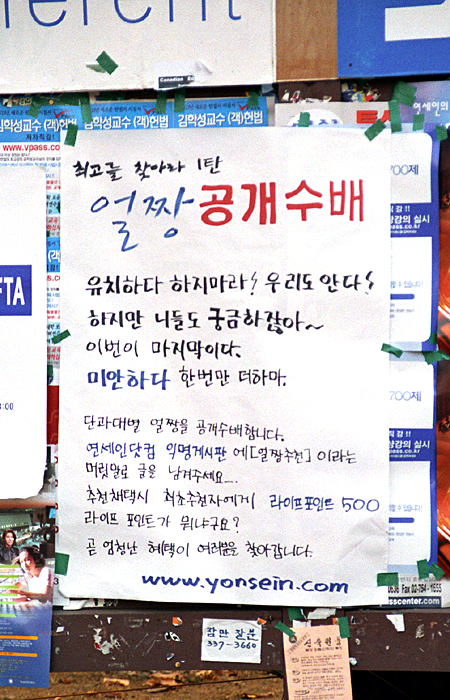 erent
Canadian
김학성교수 (객)헌법
김학성교수 (객)헌법
김학성교수 (객)헌법
www.vpass.co
최고를 찾아라 1탄
얼짱 공개수배
유치하다 하지마라! 우리도 안다!
하지만 니들도 궁금하잖아~
이번이 마지막이다.
미안하다 한번만 더하마.
단과대별 얼짱을 공개수배합니다.
연세인닷컴 익명게시판 에 [얼짱추천] 이라는
머릿말로 글을 남겨주세요...
추천채택시 최초추천자에게 라이프포인트 500
라이프 포인트가 뭐냐구요?
곧 엄청난 혜택이 여러분을 찾아갑니다.
www.yonsein.com
FTA
700제
강의 실시
700제
강의 실시
sscenter.com
잠만 잘분
337-3660